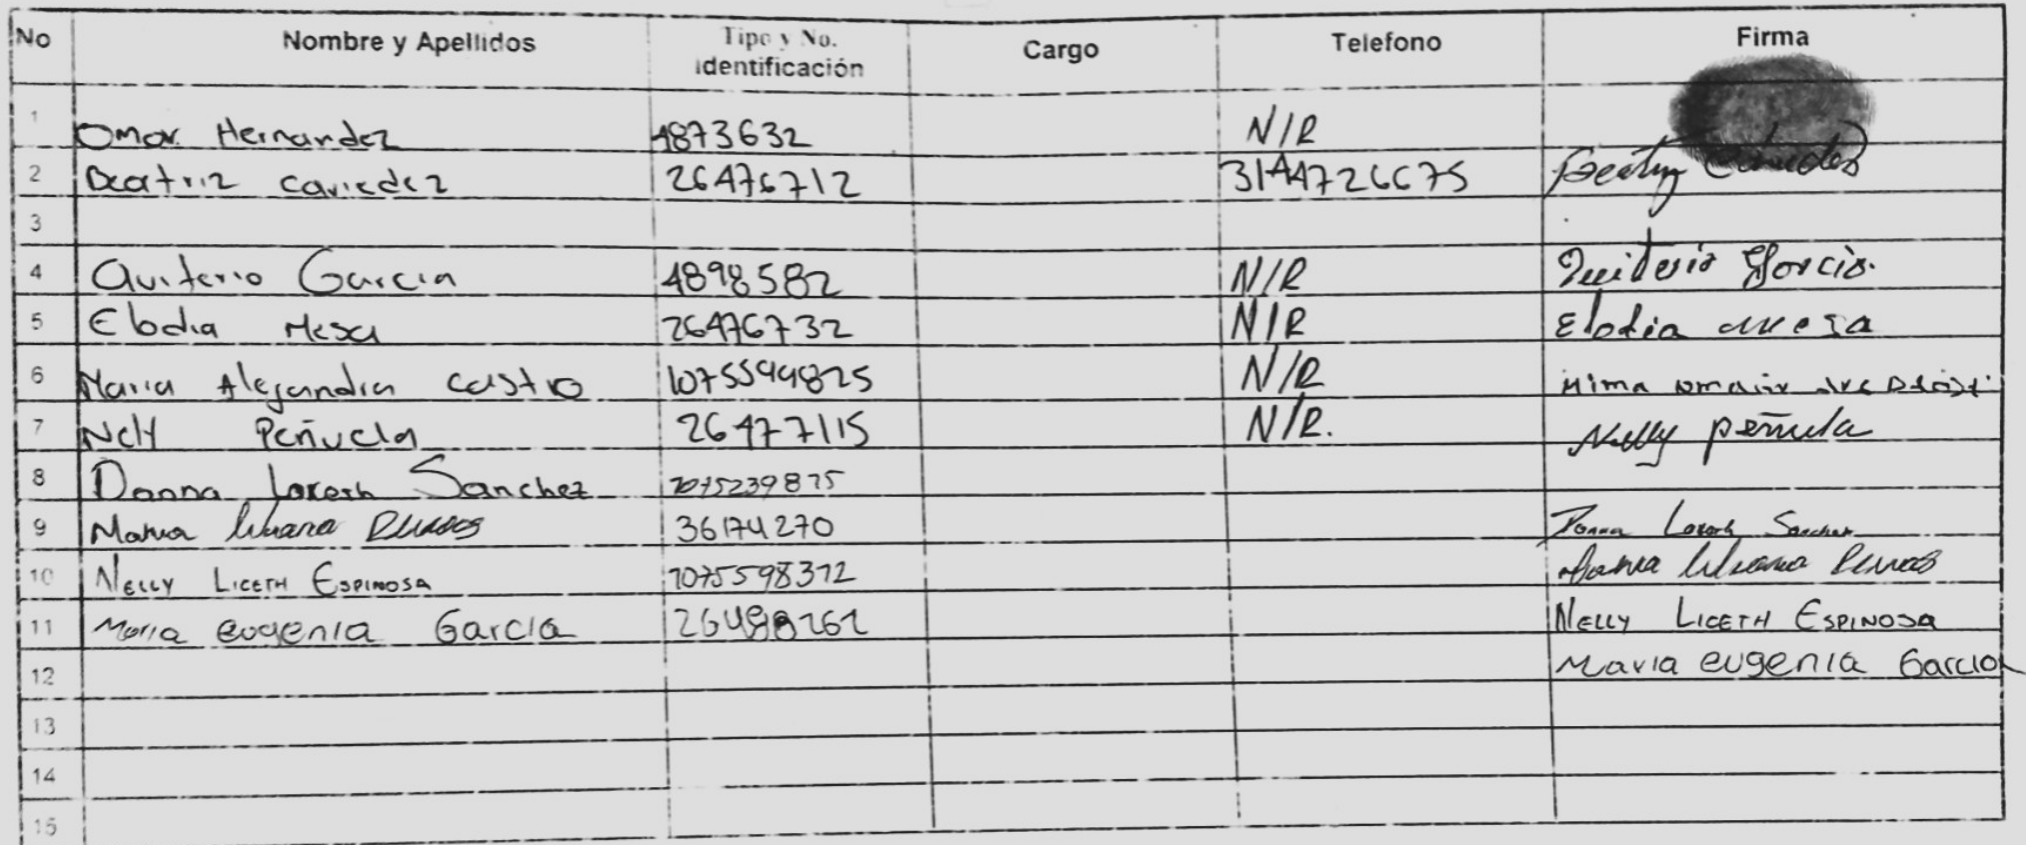 No Nombre y Apellidos Tipo y No. identificación Cargo Telefono Firma
1 Omar Hernandez 4873632 N/R
2 Beatriz Caviedez 26476712 3144726675 Beatriz Caviedes
3
4 Quiterio Garcia 4898582 N/R Quiterio Garcia.
5 Elodia Mesa 26476732 N/R Elodia mesa
6 Maria Alejandra Castro 1075599825 N/R
7 Nelly Peñuela 26477115 N/R. Nelly peñuela
8 Danna Loreth Sanchez 1075239875
9 Maria liliana 36174270 Danna Loreth Sanchez
10 NELLY LICETH ESPINOSA 1075598372 Maria liliana
11 Maria eugenia Garcia 26498262 NELLY LICETH ESPINOSA
12 Maria eugenia Garcia
13
14
15